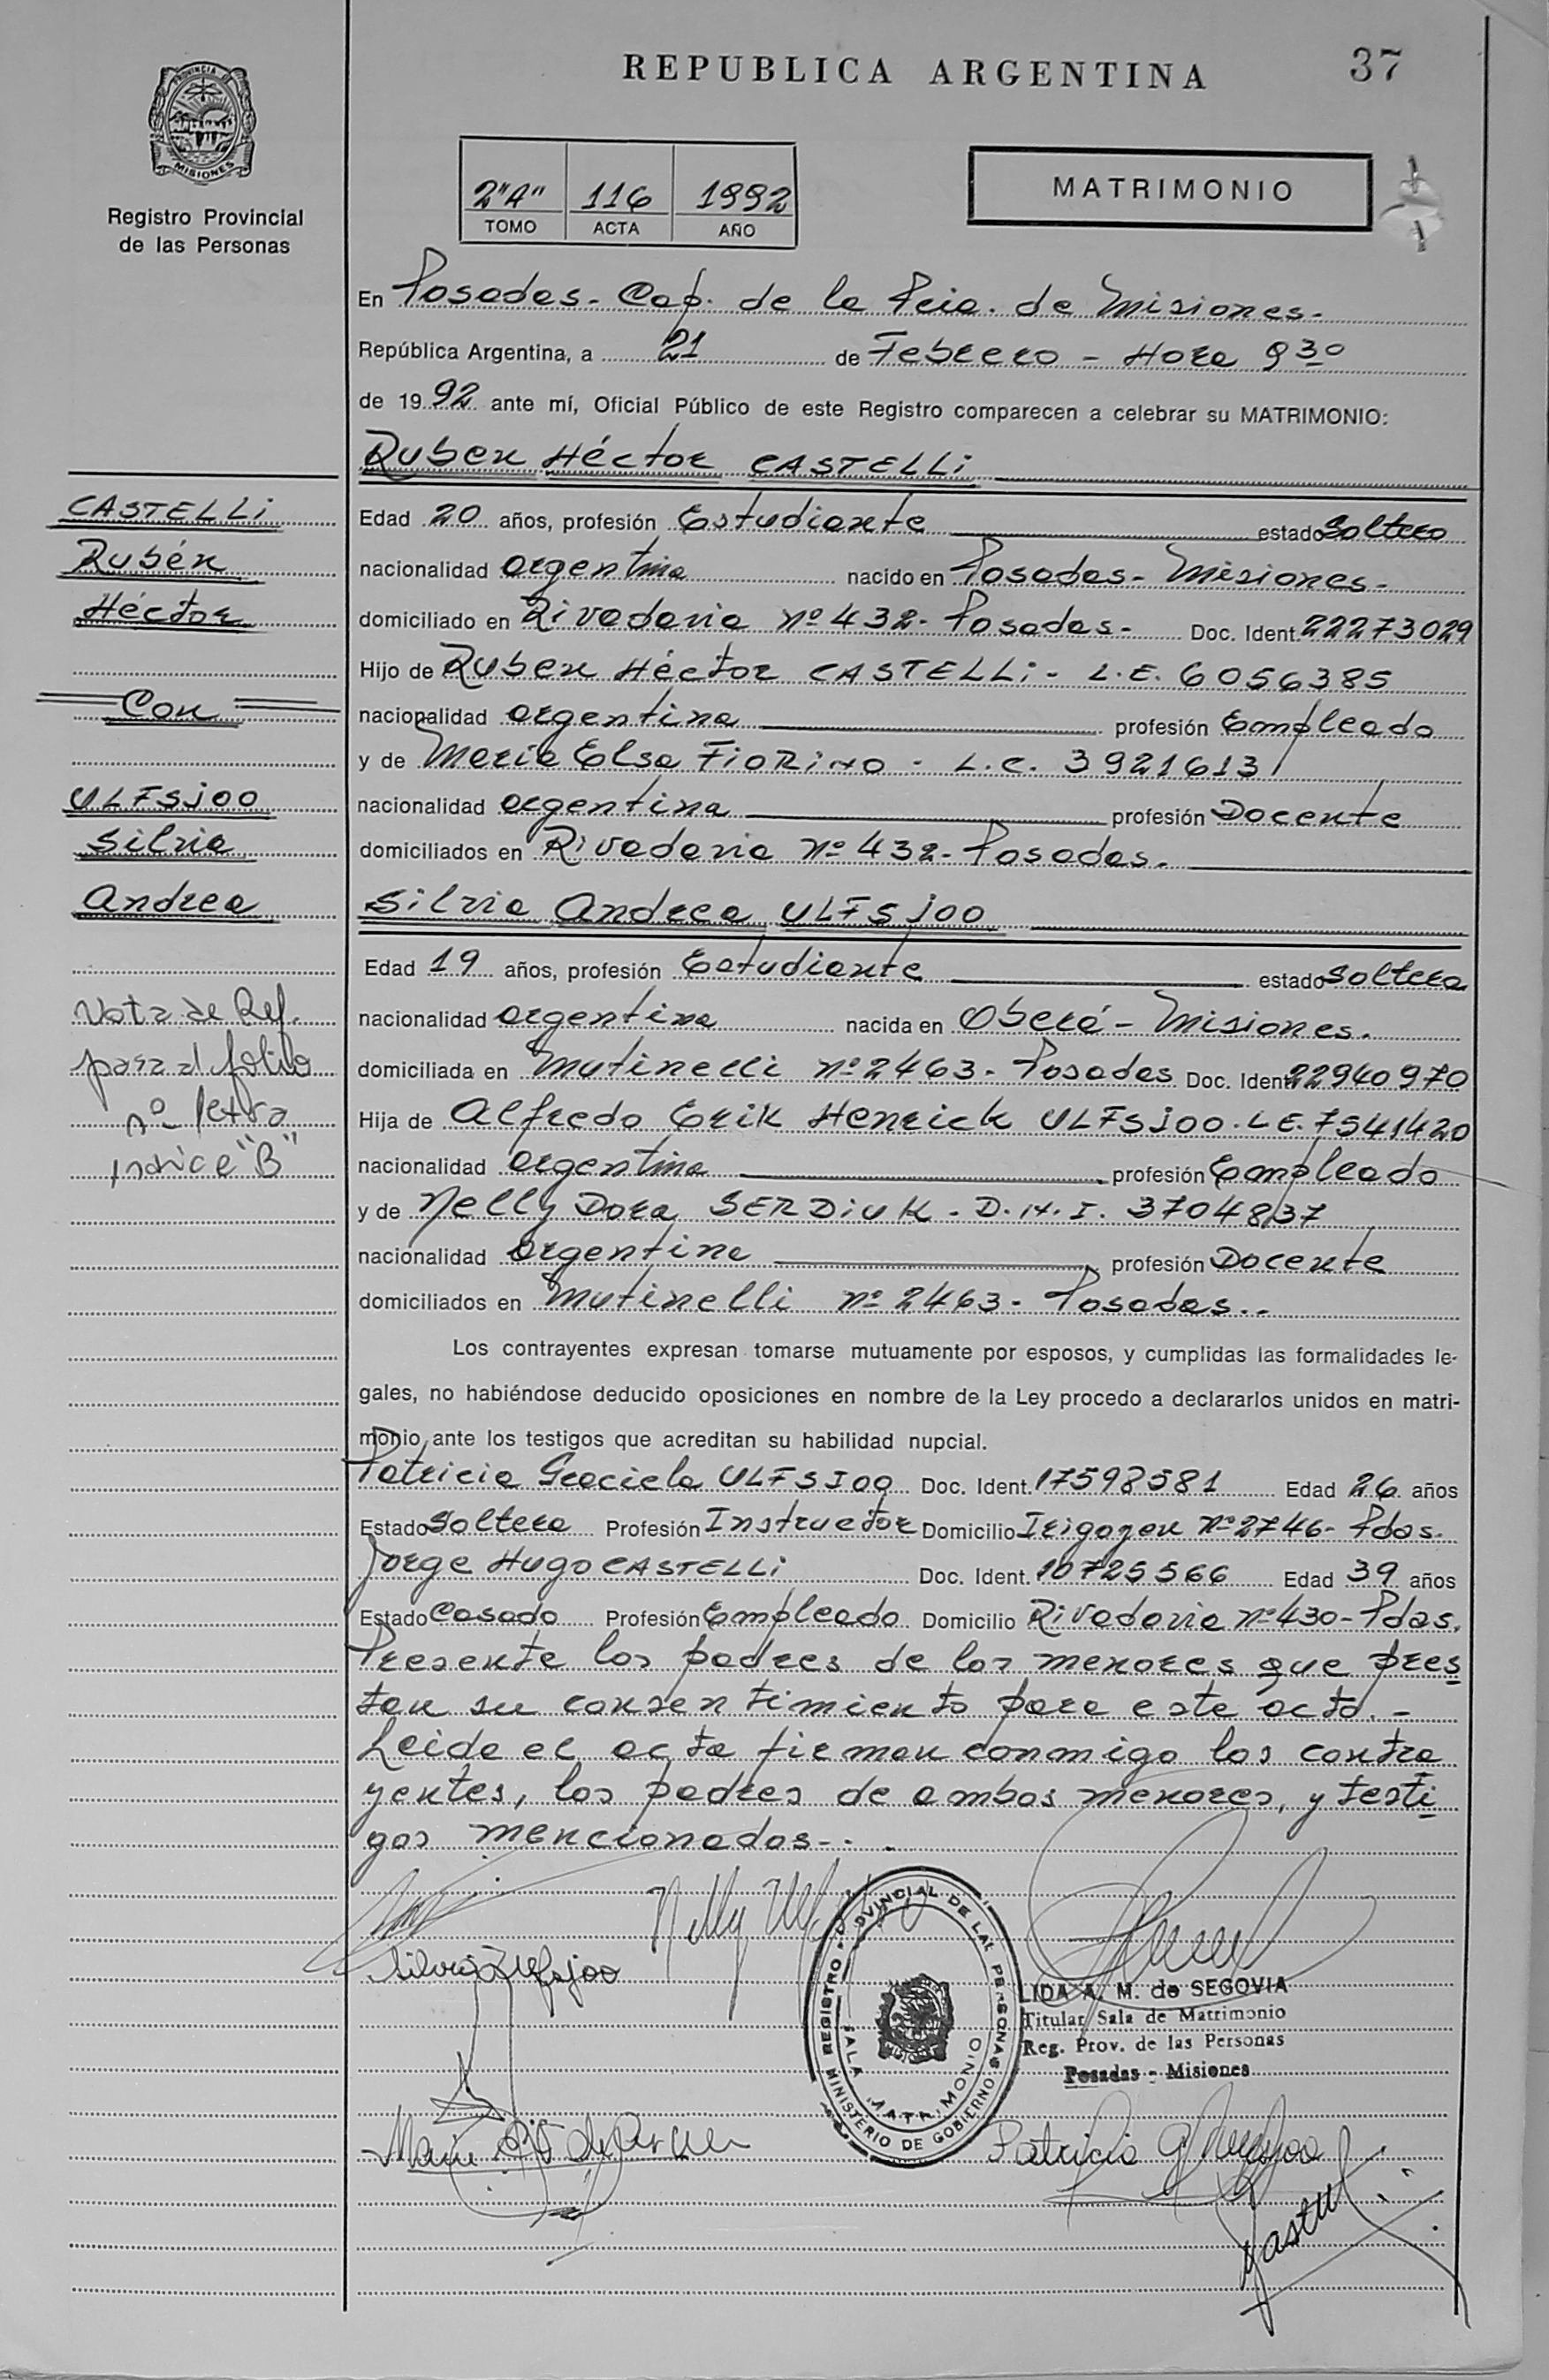 REPUBLICA ARGENTINA
37
PROVINCIA DE
MISIONES
Registro Provincial
de las Personas
2"A" 116 1992
TOMO ACTA AÑO
MATRIMONIO
En Posadas - Cap. de la Pcia. de Misiones -
República Argentina, a 21 de Febrero - Hora 9 30
de 1992 ante mí, Oficial Público de este Registro comparecen a celebrar su MATRIMONIO:
Ruben Héctor CASTELLI
Edad 20 años, profesión Estudiante estado Soltero
nacionalidad argentina nacido en Posadas - Misiones -
domiciliado en Rivadavia Nº 432 - Posadas - Doc. Ident 22273029
Hijo de Ruben Héctor CASTELLI - L.E. 6056385
nacionalidad argentina profesión Empleado
y de Maria Elsa FIORINO - L.C. 3921613
nacionalidad argentina profesión Docente
domiciliados en Rivadavia Nº 432 - Posadas.
Silvia Andrea ULFSJOO
Edad 19 años, profesión Estudiante estado Soltera
nacionalidad argentina nacida en Oberá - Misiones.
domiciliada en Mutinelli Nº 2463 - Posadas Doc. Ident 22940970
Hija de Alfredo Erik Henrick ULFSJOO - L.E. 7541420
nacionalidad argentina profesión Empleado
y de Nelly Dora SERDIUK - D.N.I. 3704837
nacionalidad argentina profesión Docente
domiciliados en Mutinelli Nº 2463 - Posadas.-
Los contrayentes expresan tomarse mutuamente por esposos, y cumplidas las formalidades le-
gales, no habiéndose deducido oposiciones en nombre de la Ley procedo a declararlos unidos en matri-
monio ante los testigos que acreditan su habilidad nupcial.
Patricia Graciela ULFSJOO Doc. Ident. 17598581 Edad 26 años
Estado Soltera Profesión Instructor Domicilio Irigoyen Nº 2746 - Pdas.
Jorge Hugo CASTELLI Doc. Ident. 10725566 Edad 39 años
Estado Casado Profesión Empleado Domicilio Rivadavia Nº 430 - Pdas.
Presente los padres de los menores que pres
tan su consentimiento para este acto. -
Leida el acta firman conmigo los contra
yentes, los padres de ambos menores, y testi
gos mencionados -.
CASTELLI
Rubén
Héctor
Con
ULFSJOO
Silvia
Andrea
Nota de Ref.
para el folio
nº letra
indice "B"
Silvia Ulfsjoo
Nelly
REGISTRO PROVINCIAL DE LAS PERSONAS
SALA MATRIMONIO
MINISTERIO DE GOBIERNO
LIDA A. M. de SEGOVIA
Titular Sala de Matrimonio
Reg. Prov. de las Personas
Posadas - Misiones
Patricia G. Ulfsjoo